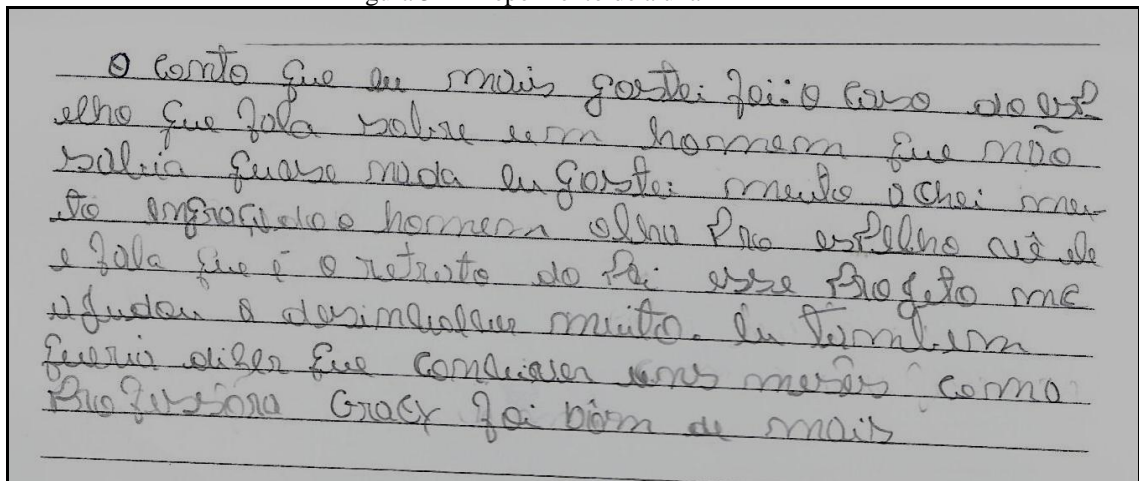 O conto que eu mais gostei foi: o caso do esp
elho que fala sobre um homem que não
sabia quase nada eu gostei muito achei mui
to engraçado o homem olha pro espelho vê ele
e fala que é o retrato do pai esse projeto me
ajudou a desinvolver muito. Eu também
queria dizer que conviver uns meses com a
professora Gracy foi bom de mais